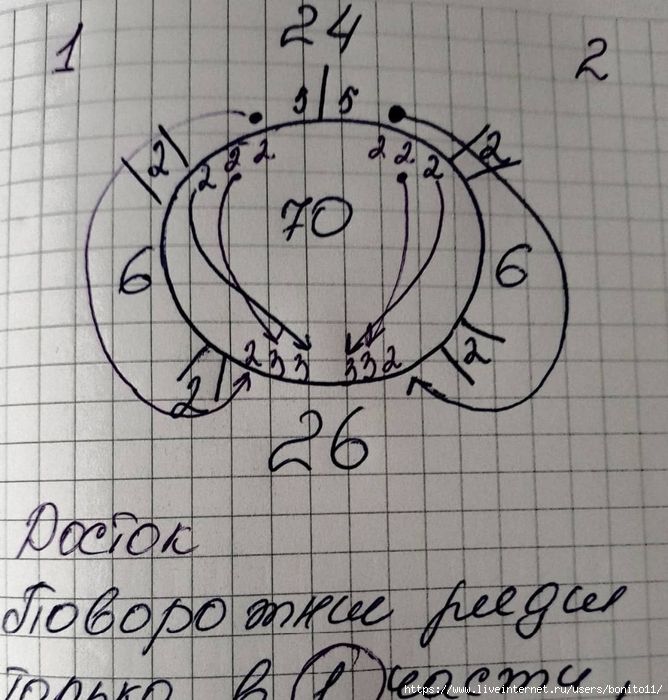 24
1
2
5 5
2
2
2 2 2
2 2 2
70
6
6
2 3 3
3 3 2
2
2
26
Росток
Поворотные ряды
только в 1 части
https://www.liveinternet.ru/users/bonito11/